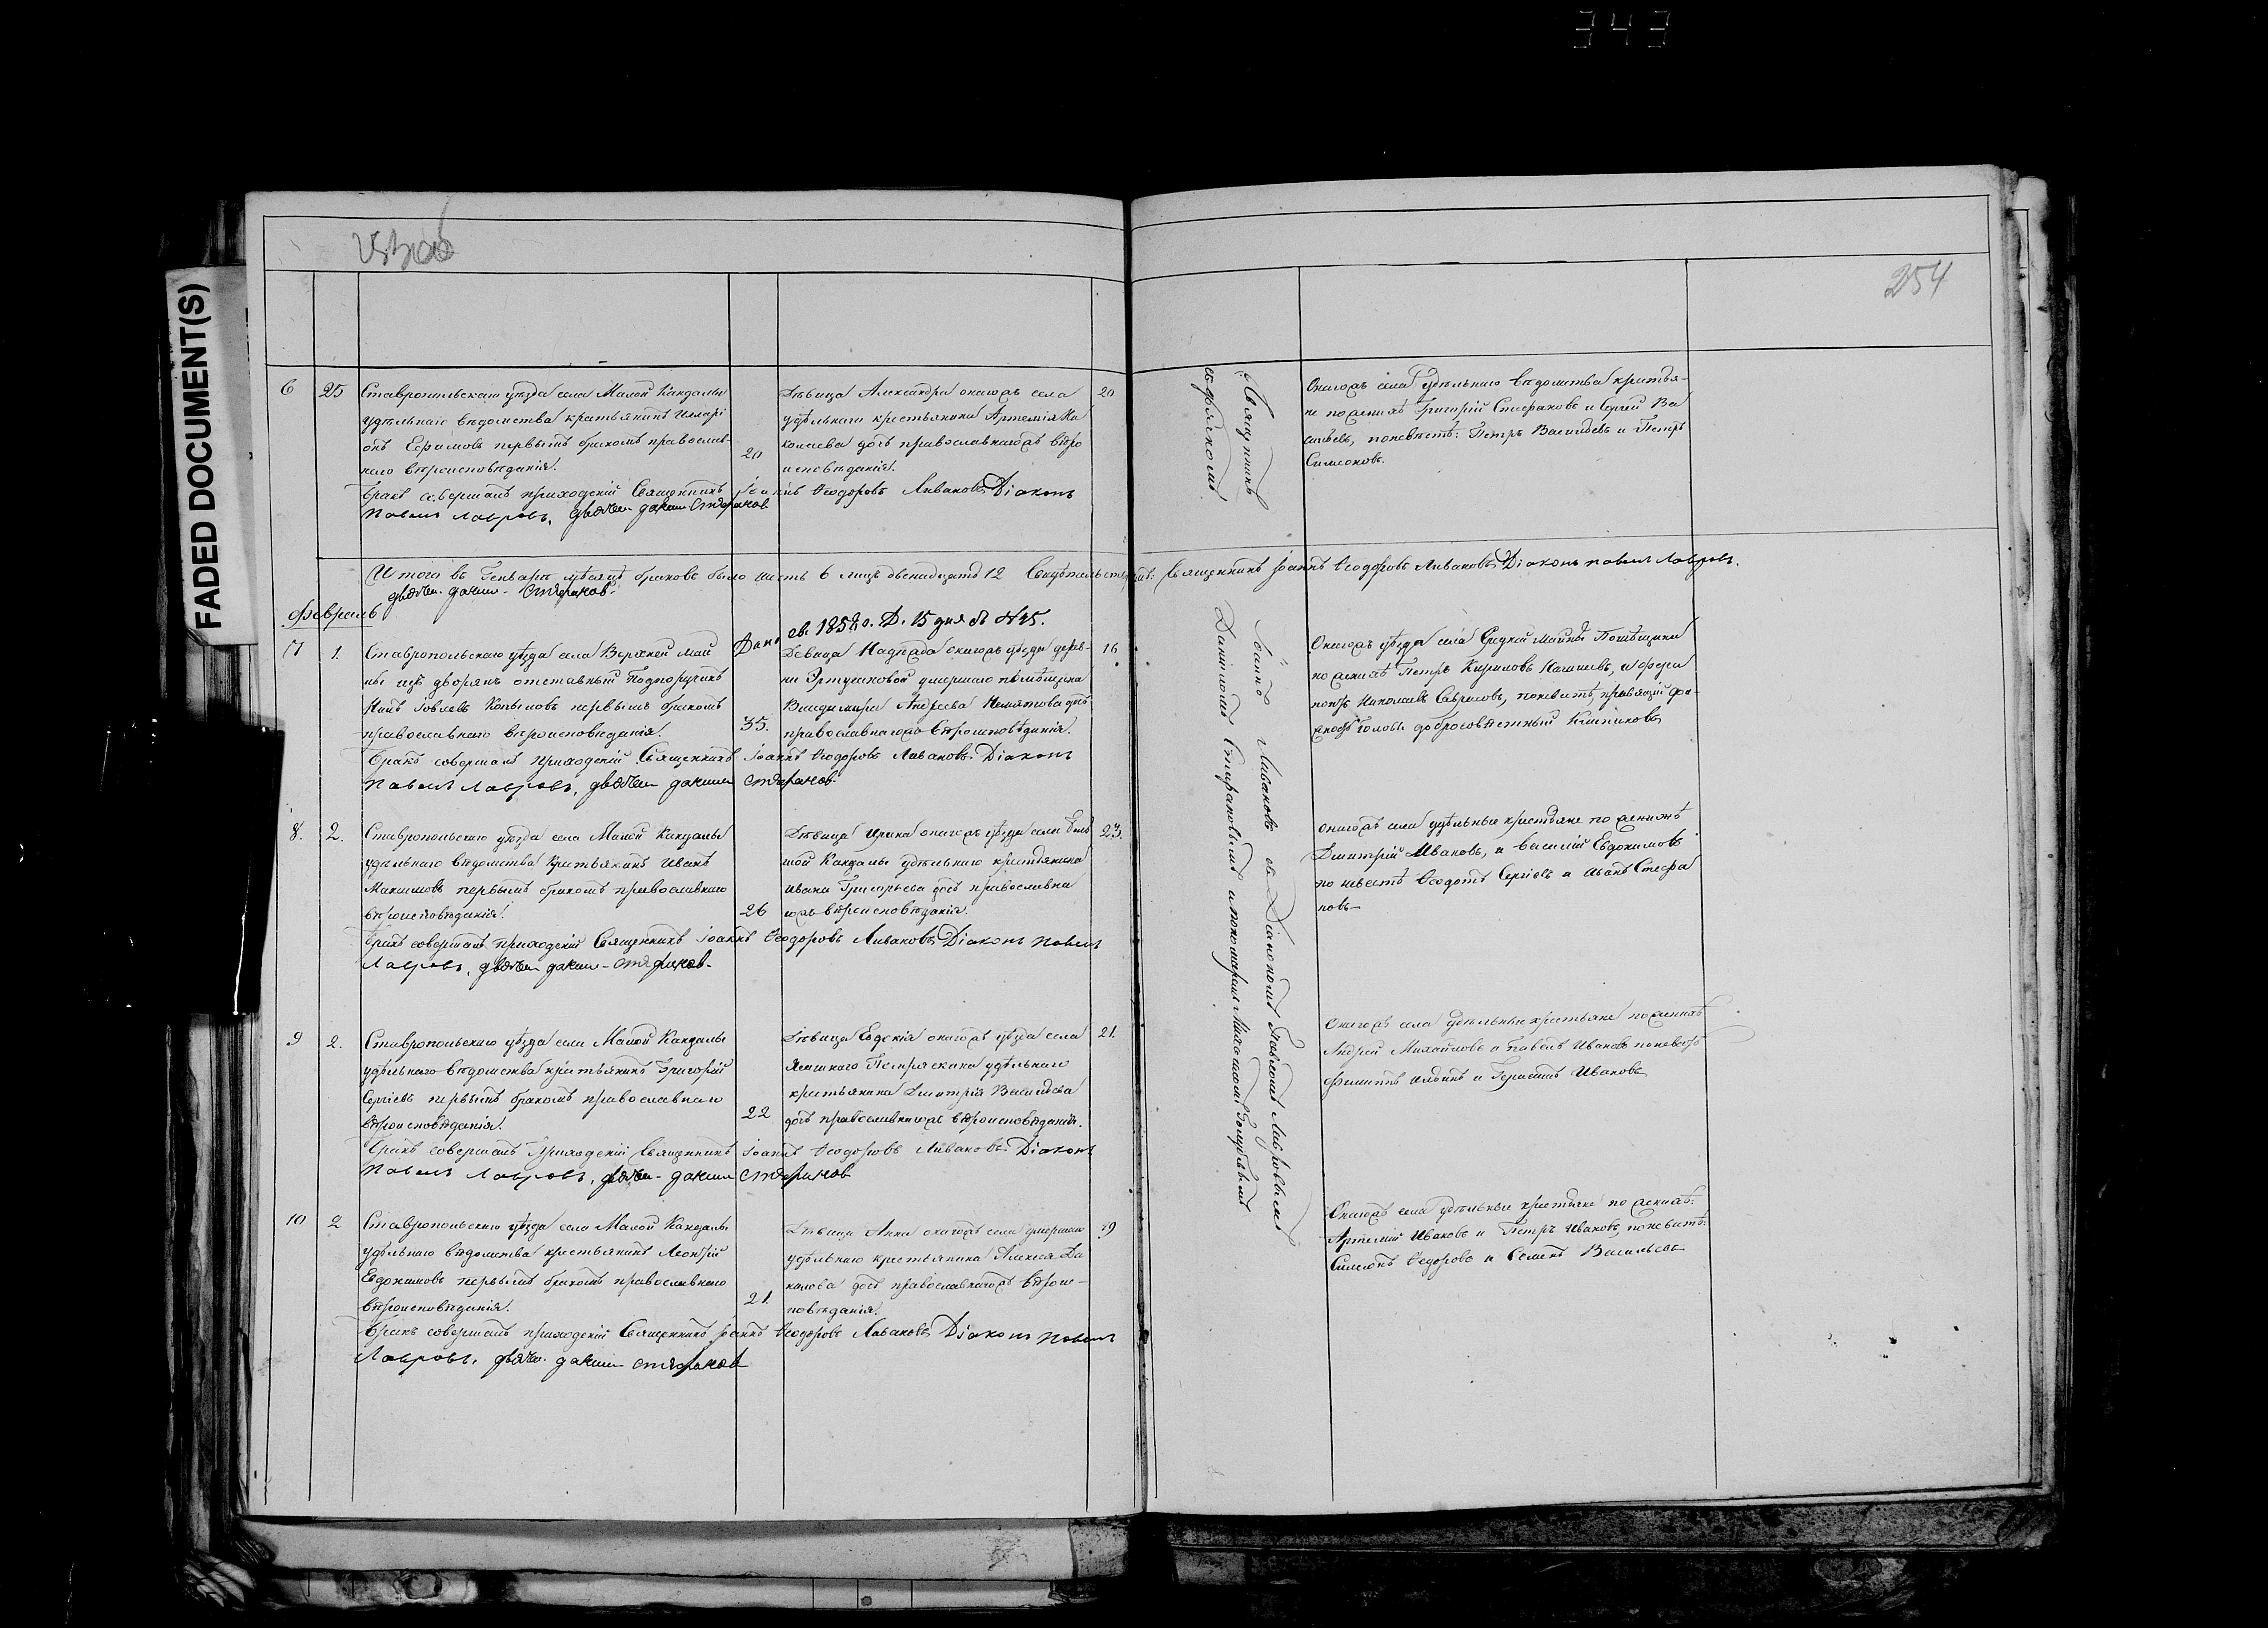 343
FADED DOCUMENT(S)
254
6 25 Ставропольскаго уѣзда села Малой Кандалы
удѣльнаго вѣдомства крестьянинъ Иларі
онъ Ефимовъ первымъ бракомъ православ-
наго вѣроисповѣданія.
20
Дѣвица Александра онагожъ села
удѣльнаго крестьянина Артемія
дочь православнагожъ вѣро
исповѣданія.
20
Бракъ совершалъ приходскій Священникъ Іоаннъ Ѳеодоровъ Ливановъ Діаконъ
Павелъ Лавровъ. дьячек данил Стефанов
Онагожъ села удѣльнаго вѣдомства крестья-
не по женихѣ Григорій Стефановъ и Сергей Ва
сильевъ, поневѣстѣ: Петръ Васильевъ и Петръ
Симеоновъ.
Священникъ Іоаннъ Ливановъ съ Діакономъ Павломъ Лавровымъ
дьячкомъ Даниломъ Стефановымъ и пономаремъ
Итого въ Генварѣ мѣсяцѣ браковъ было шесть 6 лицъ двенадцать 12 Священникъ Іоаннъ Ѳеодоровъ Ливановъ Діаконъ Павелъ Лавровъ.
дьячек данил Стефанов.
Февраль
Дано св. 1858 г. 15 дня № 45.
7 1. Ставропольскаго уѣзда села Верхней Май
ны изъ дворянъ отставный Подпоручикъ
Копыловъ первымъ бракомъ
православнаго вѣроисповѣданія.
35.
Дѣвица Надежда онагожъ уѣзда дерев-
ни умершаго помѣщика
Владимира Андреева дочь
православнагожъ вѣроисповѣданія.
16
Бракъ совершалъ Приходскій Священникъ Іоаннъ Ѳеодоровъ Ливановъ Діаконъ
Павелъ Лавровъ. дьячек данил Стефанов.
Онагожъ уѣзда села Средней Майны Помѣщики
по женихѣ Петръ Кириловъ и
Николаевъ Гавриловъ, поневѣстѣ,
Головы добросовѣстный
8. 2. Ставропольскаго уѣзда села Малой Кандалы
удѣльнаго вѣдомства Крестьянинъ Иванъ
Максимовъ первымъ бракомъ православнаго
вѣроисповѣданія.
26
Дѣвица Ирина онагожъ уѣзда села Боль
шой Кандалы удѣльнаго крестьянина
Ивана Григорьева дочь православна
гожъ вѣроисповѣданія.
23.
Бракъ совершалъ приходскій Священникъ Іоаннъ Ѳеодоровъ Ливановъ Діаконъ Павелъ
Лавровъ. дьячек данил Стефанов.
онагожъ села удѣльные крестьяне по женихѣ
Дмитрій Ивановъ, и Василій Евдокимовъ
по невѣстѣ Ѳеодотъ Сергѣевъ и Иванъ Стефа
новъ
9 2. Ставропольскаго уѣзда села Малой Кандалы
удѣльнаго вѣдомства крестьянинъ Григорій
Сергіевъ первымъ бракомъ православнаго
вѣроисповѣданія.
22
Дѣвица Евдокія онагожъ уѣзда села
удѣльнаго
крестьянина Дмитрія Васильева
дочь православнагожъ вѣроисповѣданія.
21.
Бракъ совершалъ Приходскій Священникъ Іоаннъ Ѳеодоровъ Ливановъ Діаконъ
Павелъ Лавровъ. дьячек данил Стефанов
Онагожъ села удѣльные крестьяне по женихѣ
Андрей Михайловъ и Павелъ Ивановъ поневѣстѣ
Филиппъ и Ивановъ
10 2 Ставропольскаго уѣзда села Малой Кандалы
удѣльнаго вѣдомства крестьянинъ Леонтій
Евдокимовъ первымъ бракомъ православнаго
вѣроисповѣданія.
21.
Дѣвица Анна онагожъ села умершаго
удѣльнаго крестьянина Алексея
дочь православнагожъ вѣроис-
повѣданія.
19
Бракъ совершалъ приходскій Священникъ Іоаннъ Ѳеодоровъ Ливановъ Діаконъ Павелъ
Лавровъ. дьячек данил Стефанов
Онагожъ села удѣльные крестьяне по женихѣ:
Артемій Ивановъ и Петръ Ивановъ, поневѣстѣ:
Симеонъ Ѳедоровъ и Семенъ Васильевъ